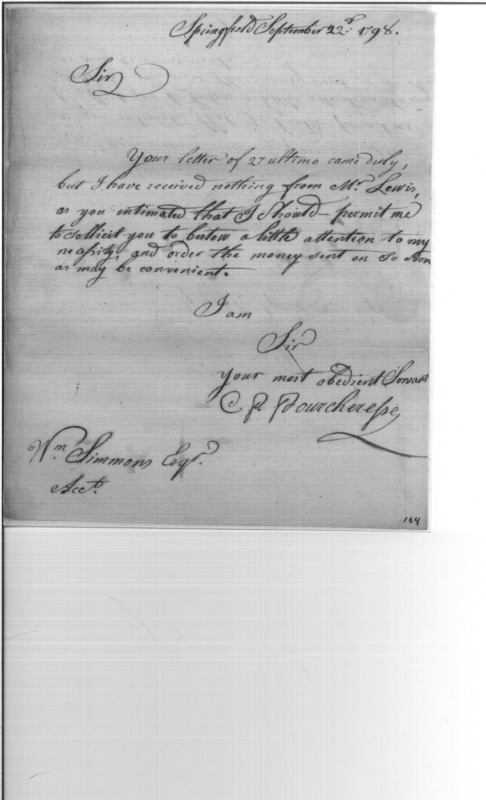 Springfield September 22d. 1798.
Sir
Your letter of 27 ultimo came duly,
but I have received nothing from Mr. Lewis,
as you intimated that I should permit me
to sollicit you to bestow a little attention to my
necessity, and order the money sent on so soon
as may be convenient.
I am
Sir
your most obedient Servant
Wm. Simmons Esqr.
Acct.
164